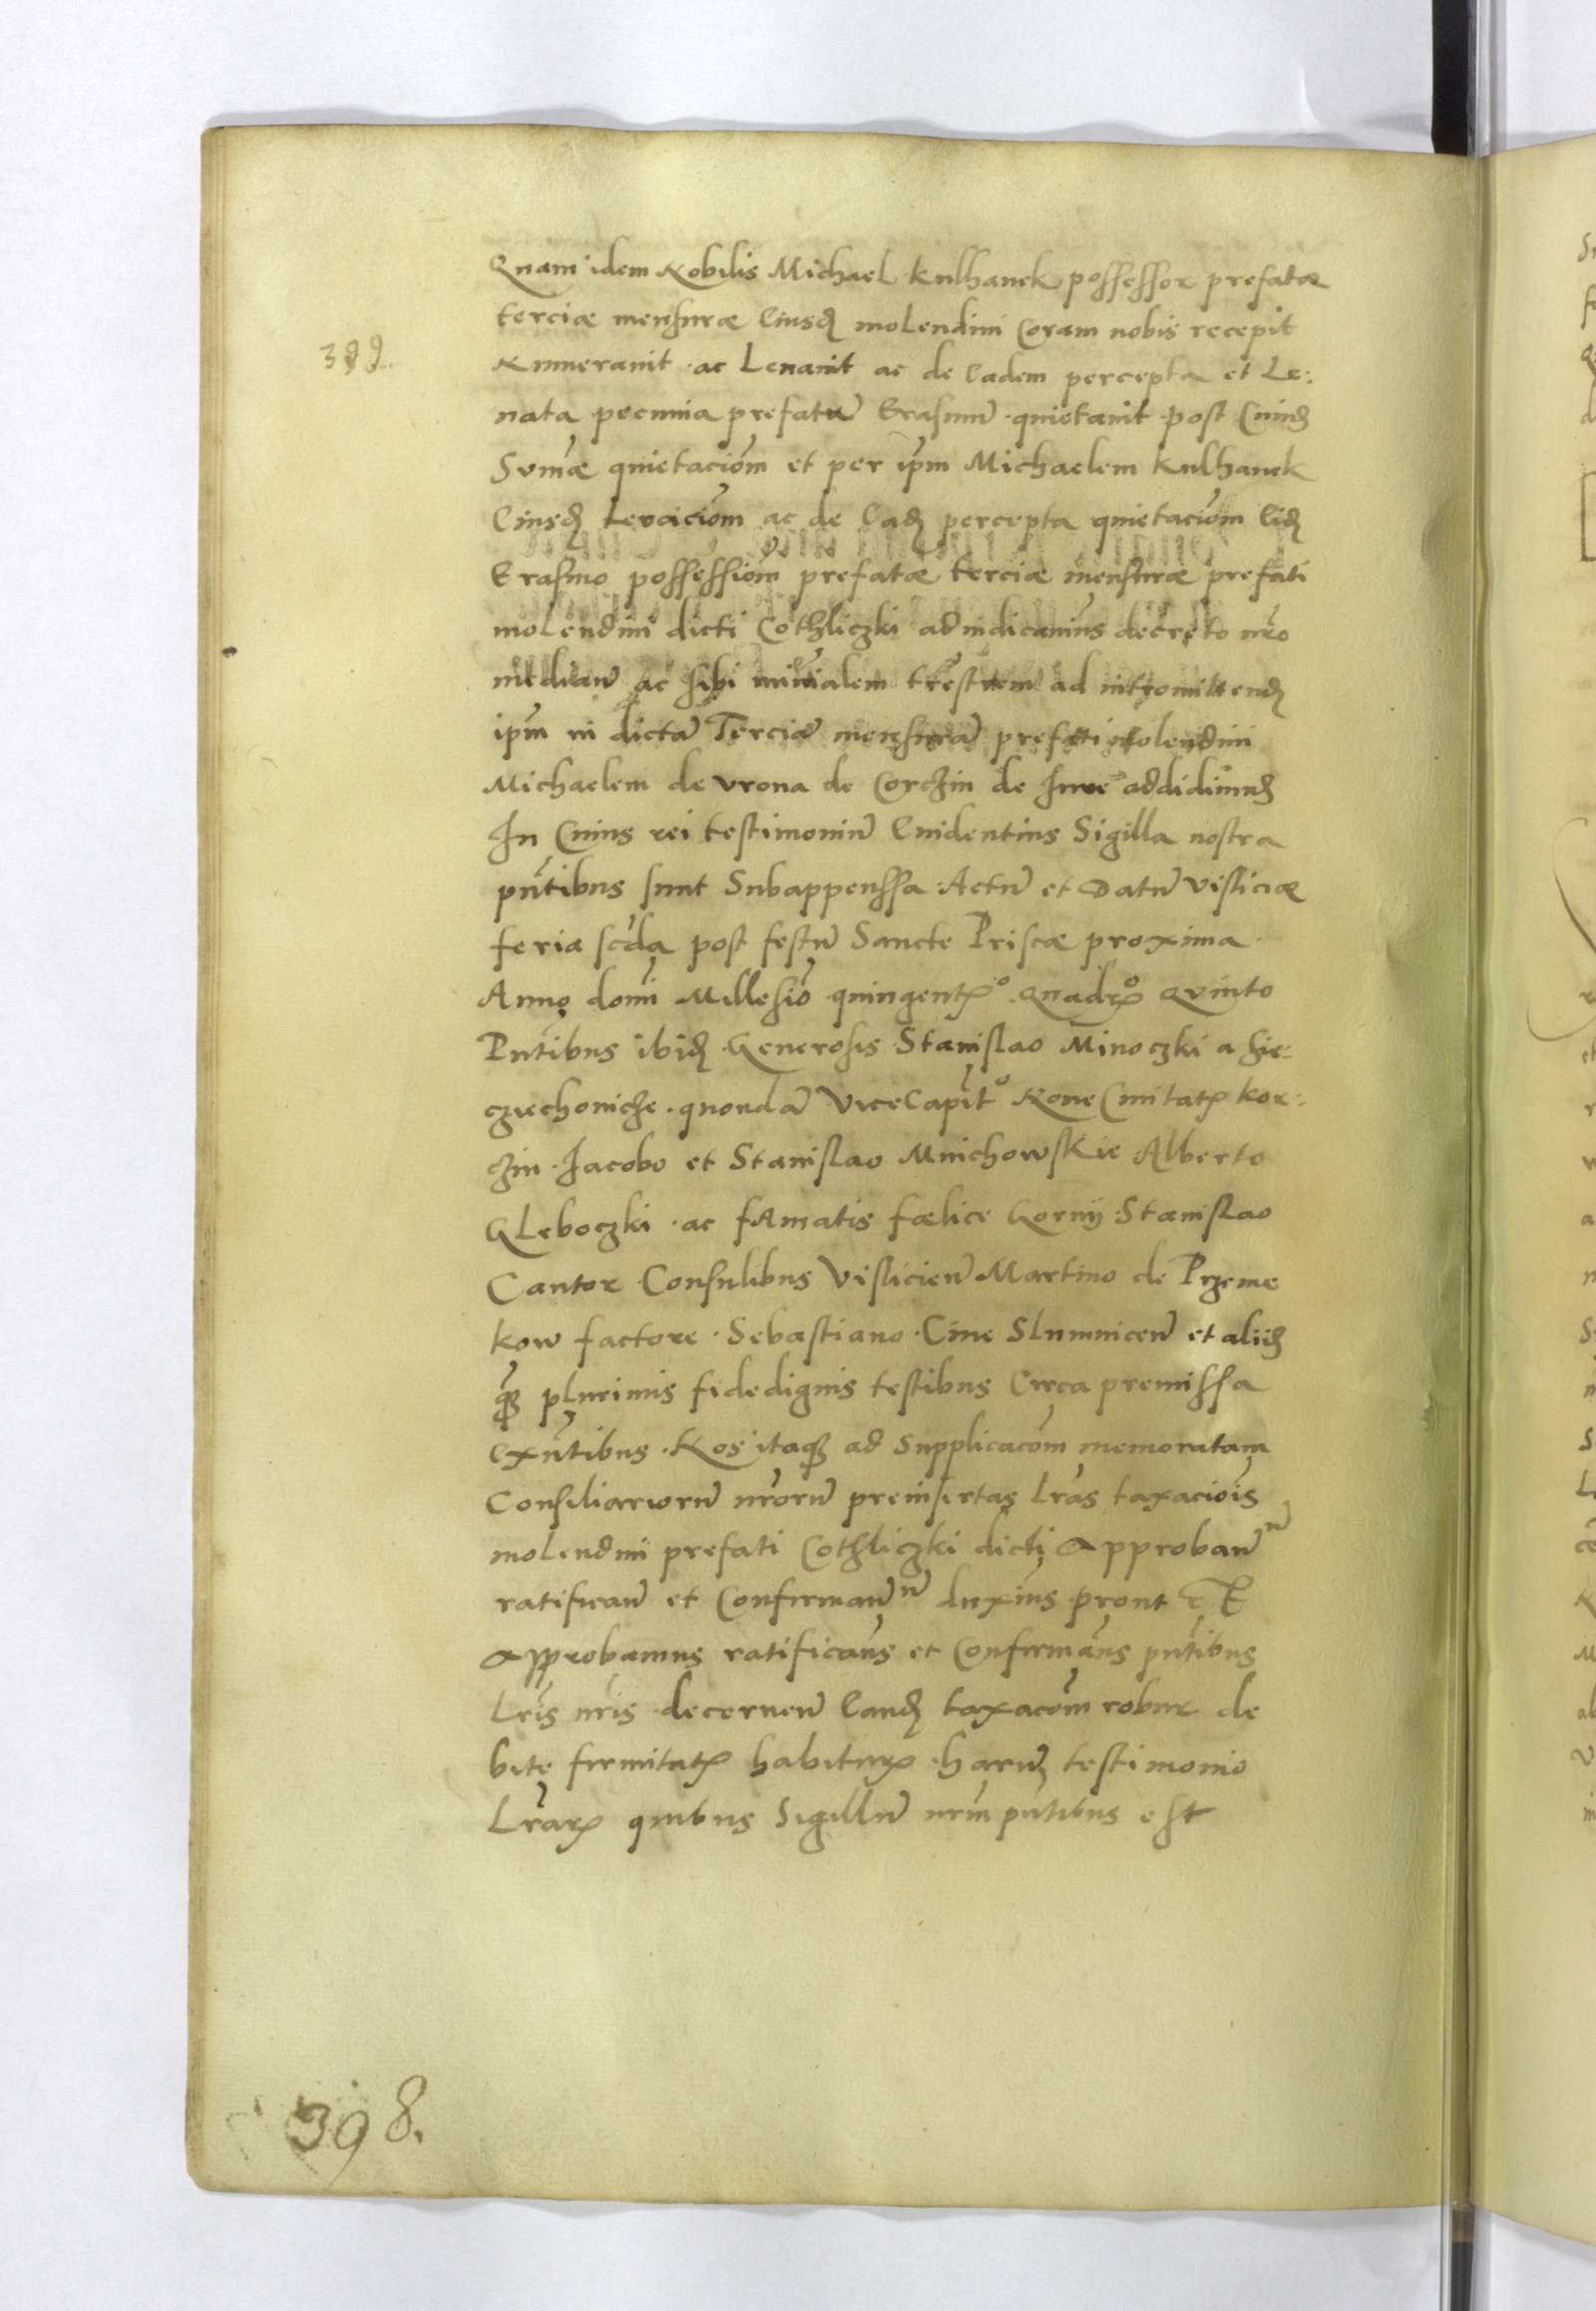 Quam idem Nobilis Michael Kulhanek possessor prefatæ
terciæ mensuræ Eiusđ molendini Coram nobis recepit
399.
Numerauit ac Leuauit ac de Eadem percepta et Le:
uata pecunia prefatū Erasmū quietauit post Cuiuſ
Sumæ quietacioēm et per ipm Michaelem Kulhanek
Eiusđ ac de Eađ percepta quietacioēm Eiđ
Erasmo possessioēm prefatæ terciæ mensuræ prefati
molendini dicti Cothliczki adiudicauimus decreto nro
median̄ ac sibi ministerialem trestrem ad intromittenđ
ipm in dictā Terciā mensurā prefati molendini
Michaelem de Vrona de Corczin de Iure addidimus
In Cuius rei testimoniū Euidentius Sigilla nostra
pntibus sunt Subappenssa Actū et Datū Visliciæ
feria scda post festū Sancte Priscæ proxima
Anno domi Millesio quingentꝭo Quadrꝭo Quinto
Pntibus ibiđ Generosis Stanislao Minoczki a Sie:
czuechonicze quondā ViceCapit Noue Ciuitatꝭ Kor:
czin Iacobo et Stanislao Mnichowskie Alberto
Gleboczki ac fAmatis fælice Gornij Stanislao
Cantor Consulibus Vislicieñ Martino de Przeme
kow factore Sebastiano Ciue Slumniceñ et aliis
qꝫ plurimis fidedignis testibus Circa premissa
Exntibus Nos itaqꝫ ad Supplicacom memoratam
Consiliariorū nrorū preinsertas lras taxaciois
molendini prefati Cothliczki dicti Approbanđ
ratificanđ et Confirmanđ duximus prout
Approbamus ratificams et Confirmams pntibus
Lris nris decernen̄ Eanđ taxacom robur de
bite firmitatꝭ habiturꝭ harū testimonio
Lrarꝭ quibus Sigillū nrm pntibus est
398.